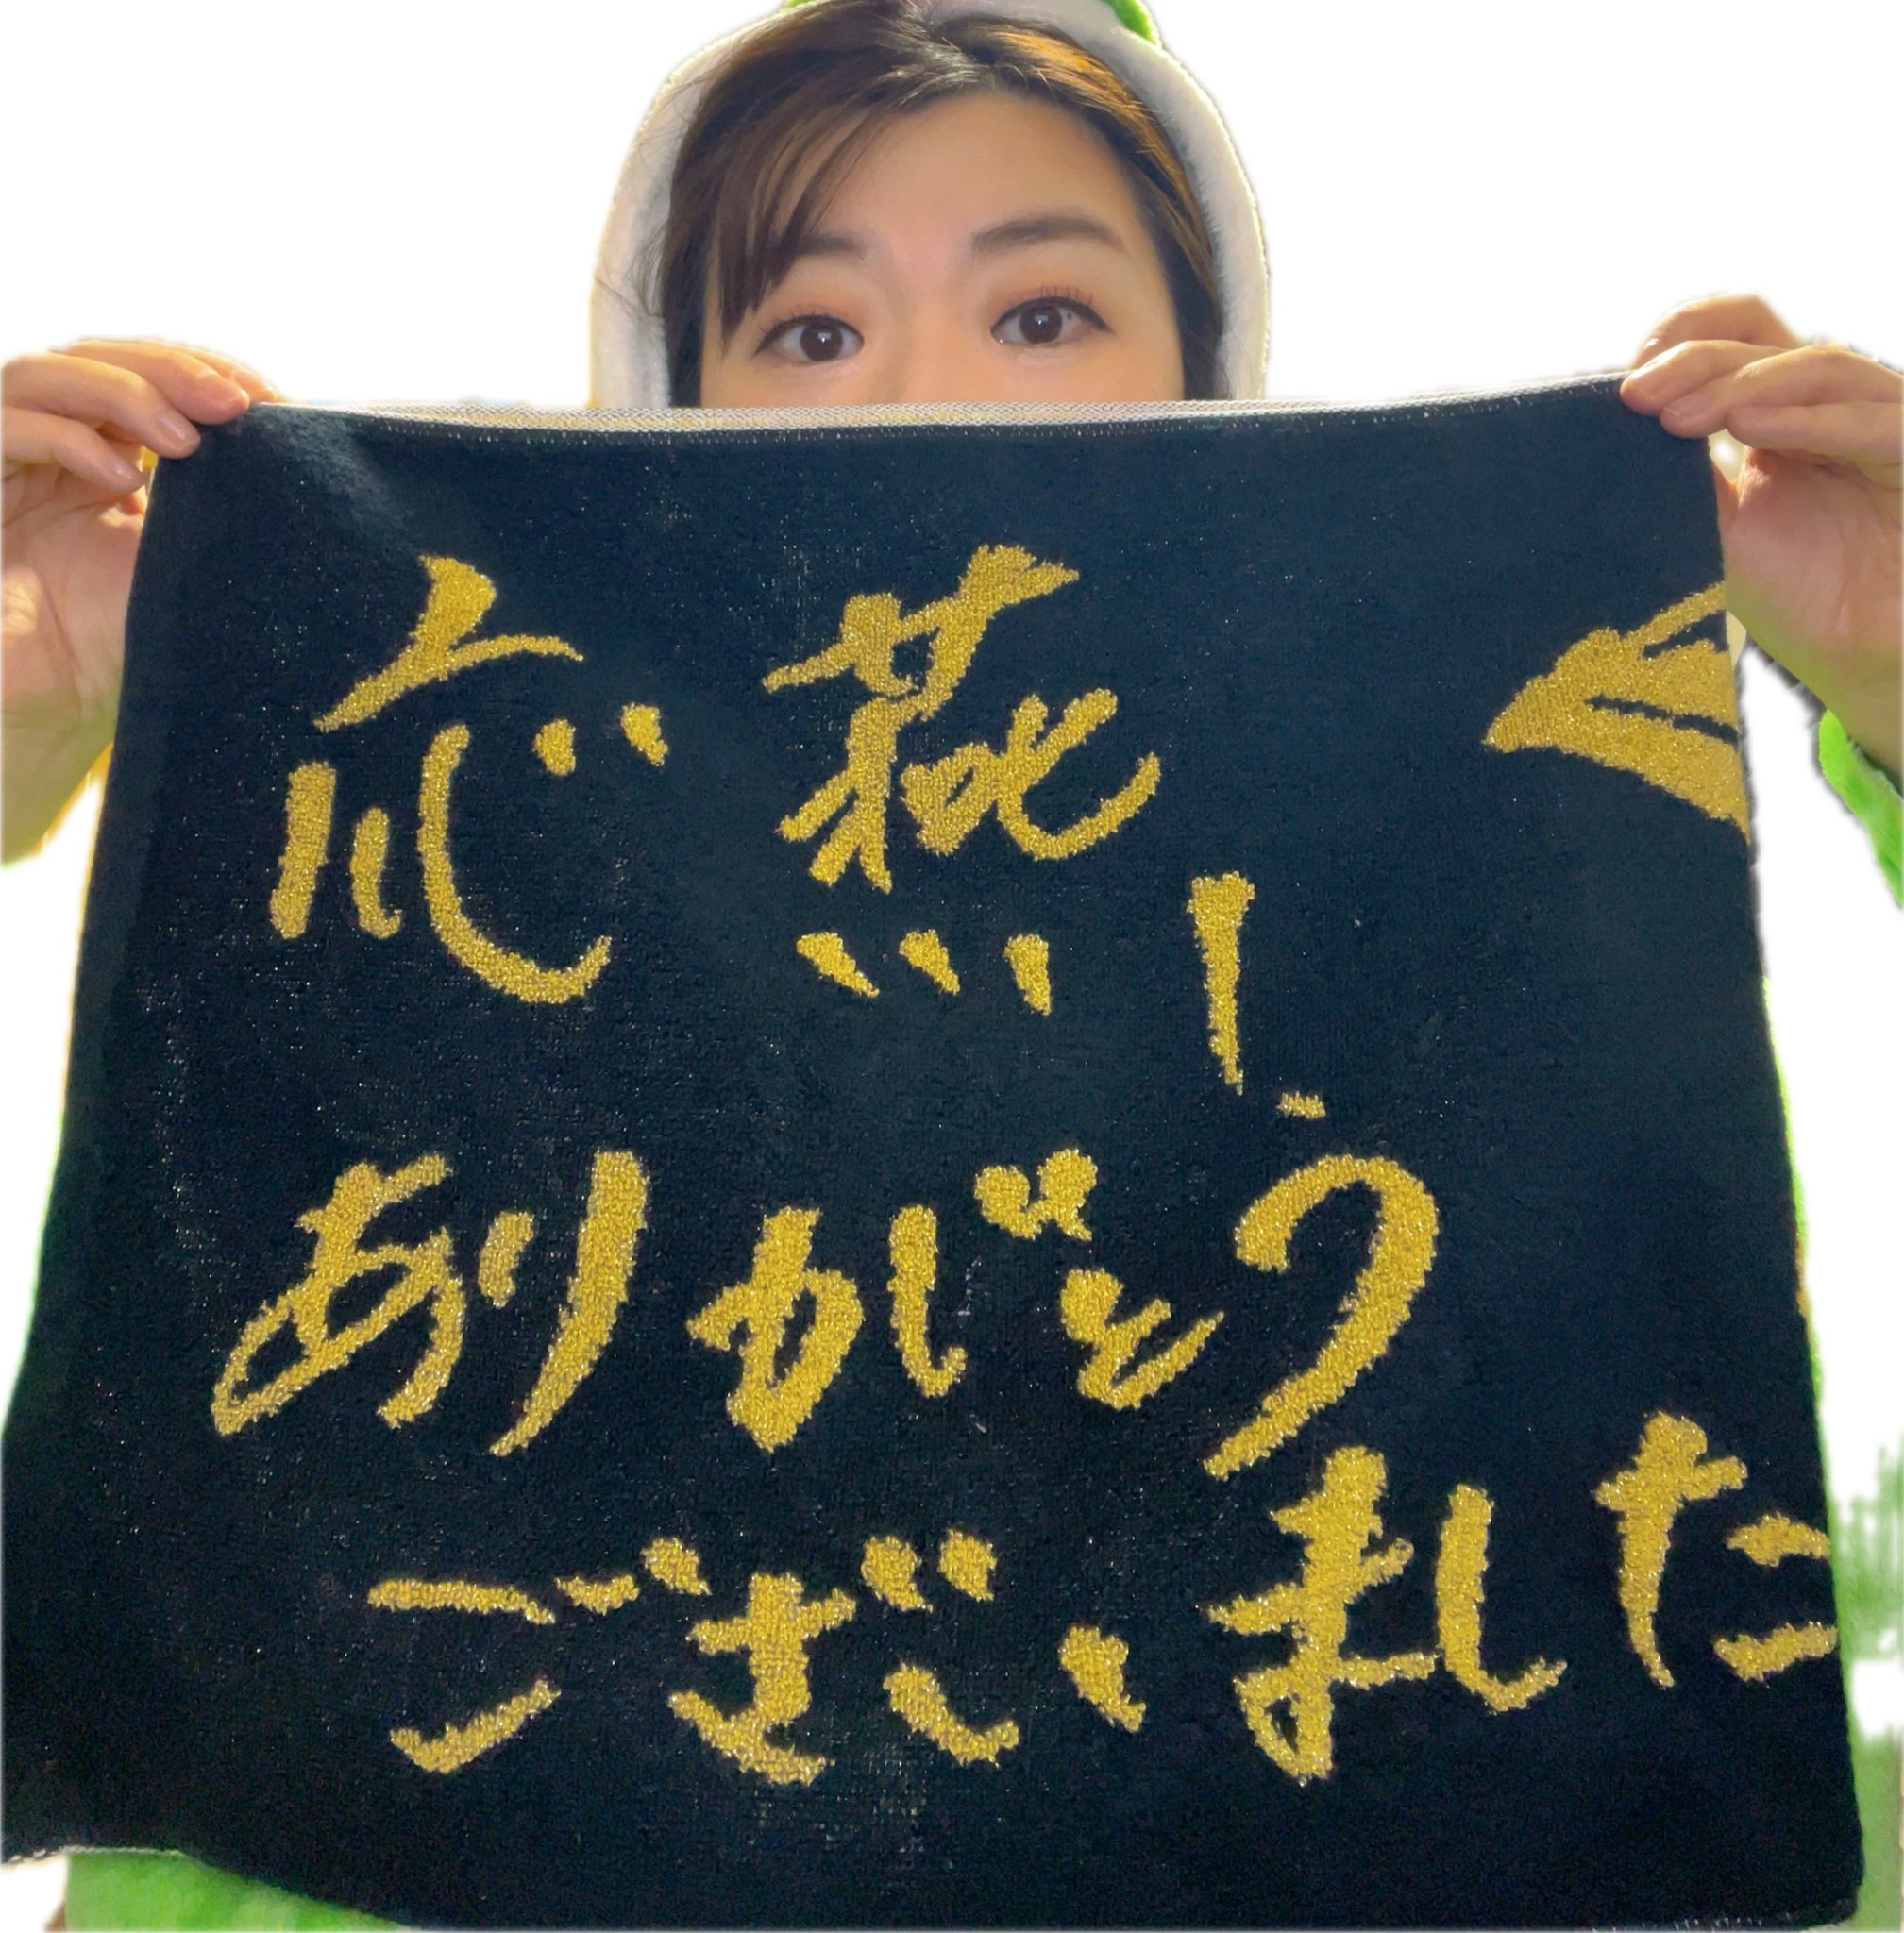 応燕
ありがとう
ございました